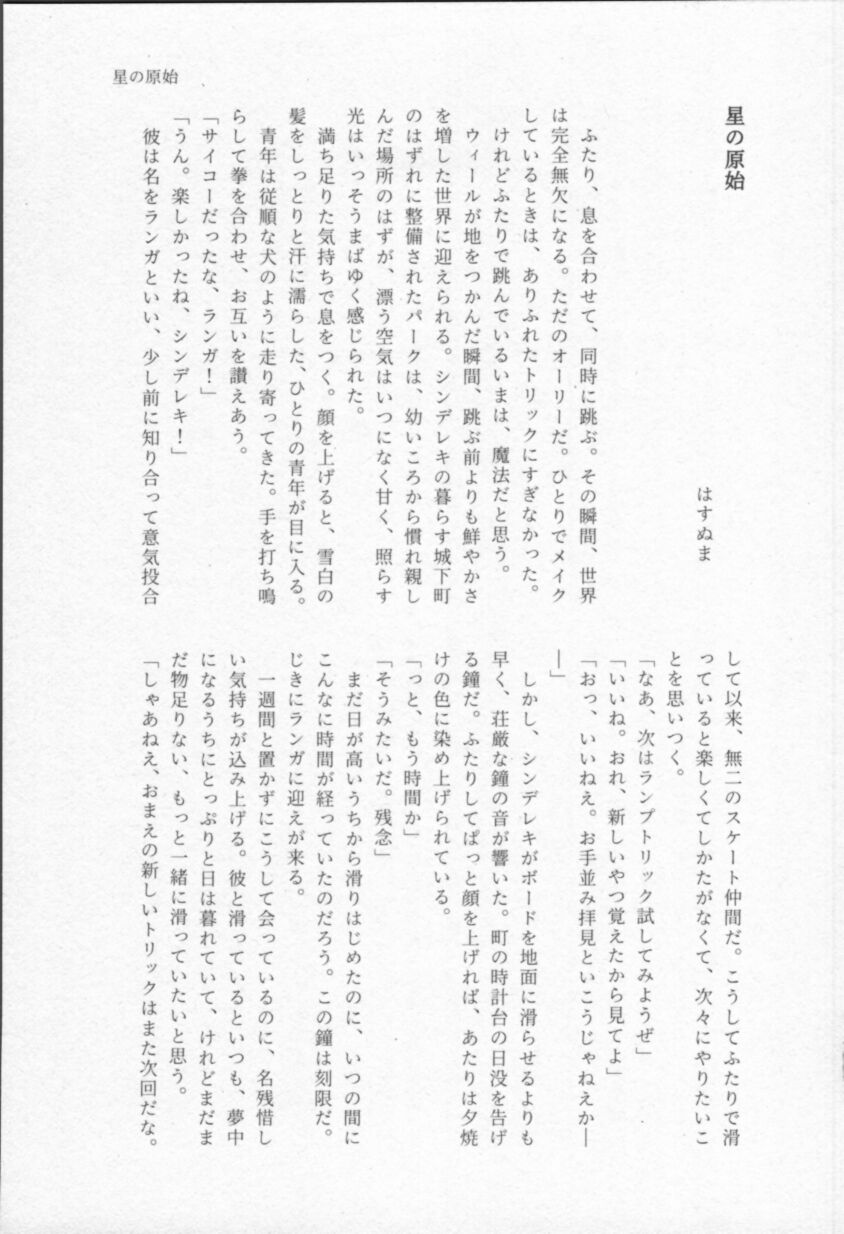 星の原始
星の原始
はすぬま
ふたり、息を合わせて、同時に跳ぶ。その瞬間、世界
は完全無欠になる。ただのオーリーだ。ひとりでメイク
しているときは、ありふれたトリックにすぎなかった。
けれどふたりで跳んでいるいまは、魔法だと思う。
ウィールが地をつかんだ瞬間、跳ぶ前よりも鮮やかさ
を増した世界に迎えられる。シンデレキの暮らす城下町
のはずれに整備されたパークは、幼いころから慣れ親し
んだ場所のはずが、漂う空気はいつになく甘く、照らす
光はいっそうまばゆく感じられた。
満ち足りた気持ちで息をつく。顔を上げると、雪白の
髪をしっとりと汗に濡らした、ひとりの青年が目に入る。
青年は従順な犬のように走り寄ってきた。手を打ち鳴
らして拳を合わせ、お互いを讃えあう。
「サイコーだったな、ランガ！」
「うん。楽しかったね、シンデレキ！」
彼は名をランガといい、少し前に知り合って意気投合
して以来、無二のスケート仲間だ。こうしてふたりで滑
っていると楽しくてしかたがなくて、次々にやりたいこ
とを思いつく。
「なあ、次はランプトリック試してみようぜ」
「いいね。おれ、新しいやつ覚えたから見てよ」
「おっ、いいねえ。お手並み拝見といこうじゃねえか―
―」
しかし、シンデレキがボードを地面に滑らせるよりも
早く、荘厳な鐘の音が響いた。町の時計台の日没を告げ
る鐘だ。ふたりしてぱっと顔を上げれば、あたりは夕焼
けの色に染め上げられている。
「っと、もう時間か」
「そうみたいだ。残念」
まだ日が高いうちから滑りはじめたのに、いつの間に
こんなに時間が経っていたのだろう。この鐘は刻限だ。
じきにランガに迎えが来る。
一週間と置かずにこうして会っているのに、名残惜し
い気持ちが込み上げる。彼と滑っているといつも、夢中
になるうちにとっぷりと日は暮れていて、けれどまだま
だ物足りない、もっと一緒に滑っていたいと思う。
「しゃあねえ、おまえの新しいトリックはまた次回だな。